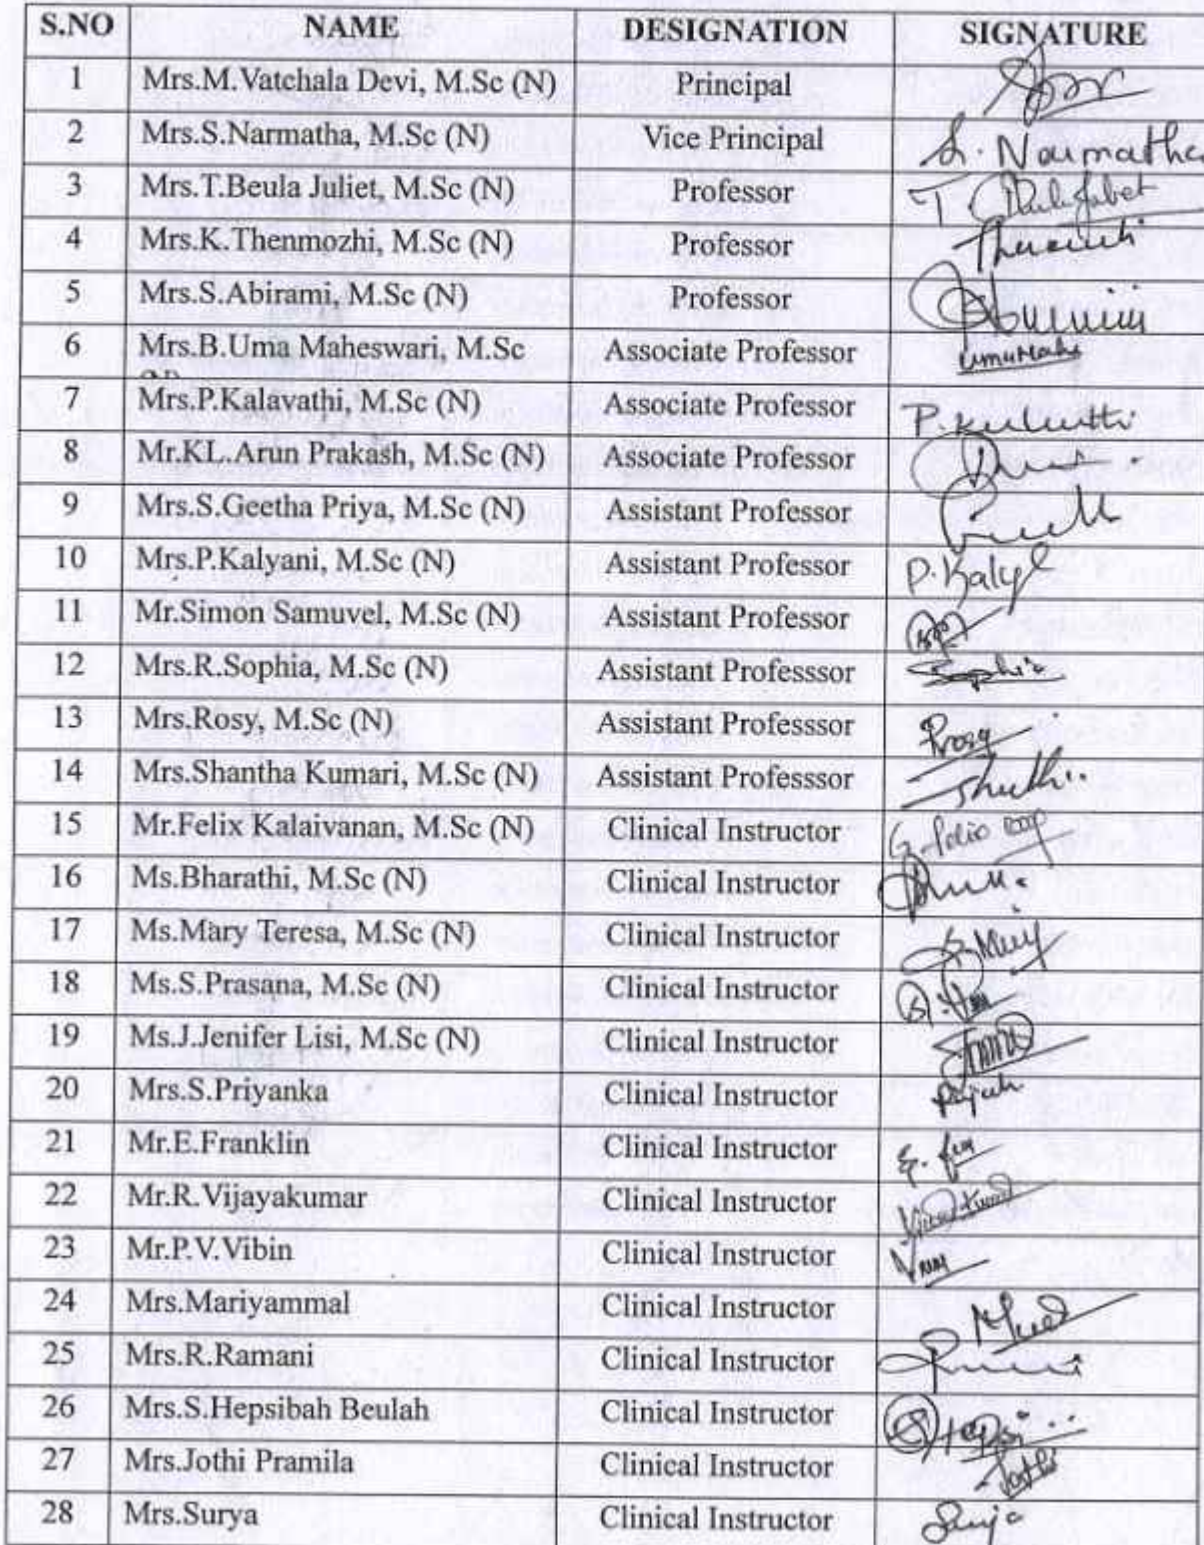 S.NO NAME DESIGNATION SIGNATURE
1 Mrs.M.Vatchala Devi, M.Sc (N) Principal
2 Mrs.S.Narmatha, M.Sc (N) Vice Principal S. Narmatha
3 Mrs.T.Beula Juliet, M.Sc (N) Professor T.
4 Mrs.K.Thenmozhi, M.Sc (N) Professor
5 Mrs.S.Abirami, M.Sc (N) Professor
6 Mrs.B.Uma Maheswari, M.Sc Associate Professor
7 Mrs.P.Kalavathi, M.Sc (N) Associate Professor P.
8 Mr.KL.Arun Prakash, M.Sc (N) Associate Professor
9 Mrs.S.Geetha Priya, M.Sc (N) Assistant Professor
10 Mrs.P.Kalyani, M.Sc (N) Assistant Professor P.
11 Mr.Simon Samuvel, M.Sc (N) Assistant Professor
12 Mrs.R.Sophia, M.Sc (N) Assistant Professsor Sophia
13 Mrs.Rosy, M.Sc (N) Assistant Professsor Rosy
14 Mrs.Shantha Kumari, M.Sc (N) Assistant Professsor
15 Mr.Felix Kalaivanan, M.Sc (N) Clinical Instructor
16 Ms.Bharathi, M.Sc (N) Clinical Instructor
17 Ms.Mary Teresa, M.Sc (N) Clinical Instructor
18 Ms.S.Prasana, M.Sc (N) Clinical Instructor
19 Ms.J.Jenifer Lisi, M.Sc (N) Clinical Instructor
20 Mrs.S.Priyanka Clinical Instructor
21 Mr.E.Franklin Clinical Instructor
22 Mr.R.Vijayakumar Clinical Instructor
23 Mr.P.V.Vibin Clinical Instructor
24 Mrs.Mariyammal Clinical Instructor
25 Mrs.R.Ramani Clinical Instructor
26 Mrs.S.Hepsibah Beulah Clinical Instructor
27 Mrs.Jothi Pramila Clinical Instructor Jothi
28 Mrs.Surya Clinical Instructor